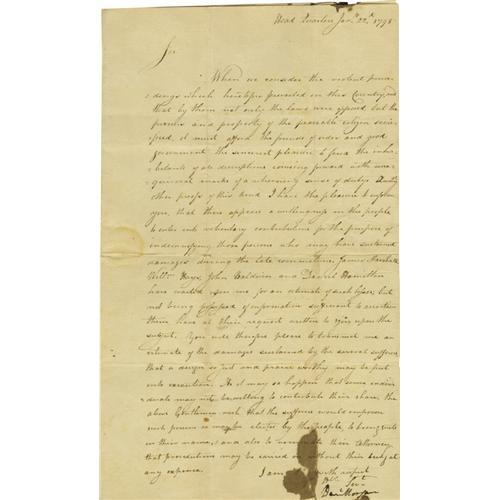 Head Quarters Jany 22d 1795
Sir
When we consider the violent procee-
dings which heretofore prevailed in this Country, and
that by them not only the laws were opposed but the
persons and property of the peaceable citizen
it must afford the friends of order and good
government the sincerest pleasure to find the inha-
bitants of all descriptions coming forward with une-
quivocal marks of a returning sense of duty. Among
other proofs of this kind I have the pleasure to inform
you, that there appears a willingness in the people
to enter into voluntary contributions for the purpose of
indemnifying those persons who may have sustained
damages during the late commotions. James Marshall
Willm Hays, John Baldwin and Daniel Hamilton
have waited upon me for an estimate of such losses; but
not being possessed of information sufficient to ascertain
them have at their request written to you upon the
subject. You will therefore please to transmit me an
estimate of the damages sustained by the several sufferers
that a design so just and praise worthy may be put
into execution. As it may so happen that some indivi-
duals may not be willing to contribute their share, the
above Gentlemen wish that the sufferers would empower
such persons as may be elected by the people, to bring suits
in their names, and also to nominate their attorney
that prosecutions may be carried on without their being at
any expence.
I am with respect
Sert
Danl Morgan